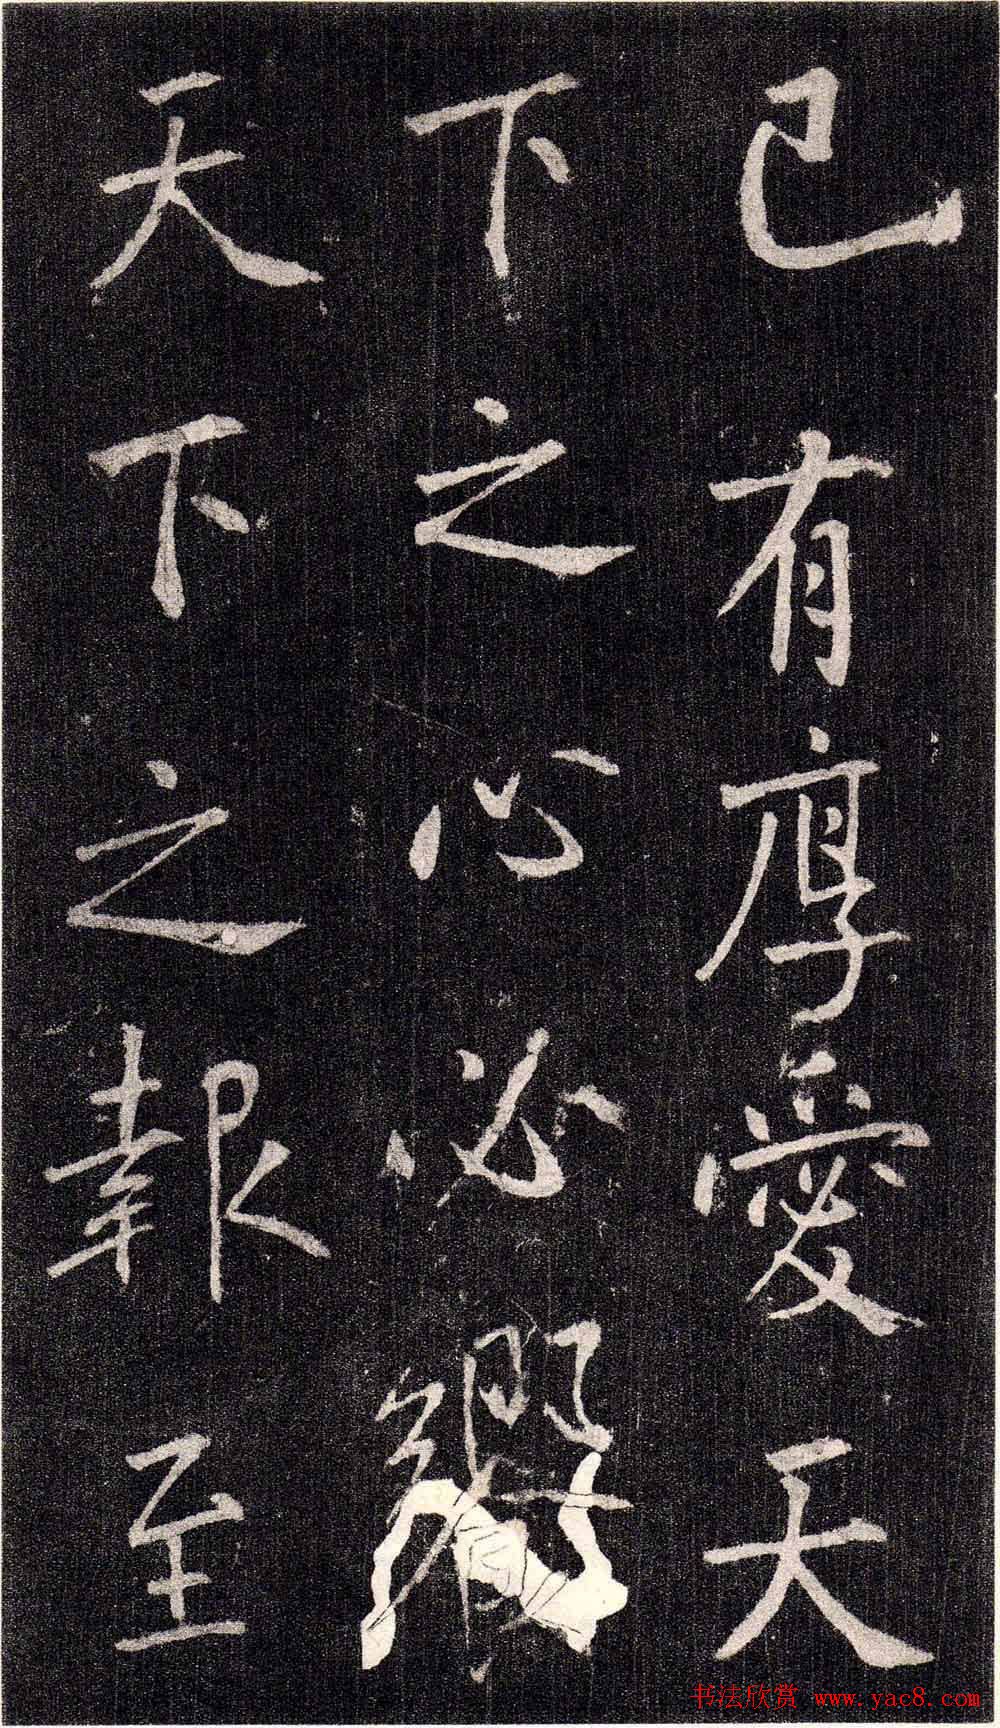 已有厚愛天
下之心必
天下之報至
书法欣赏 www.yac8.com